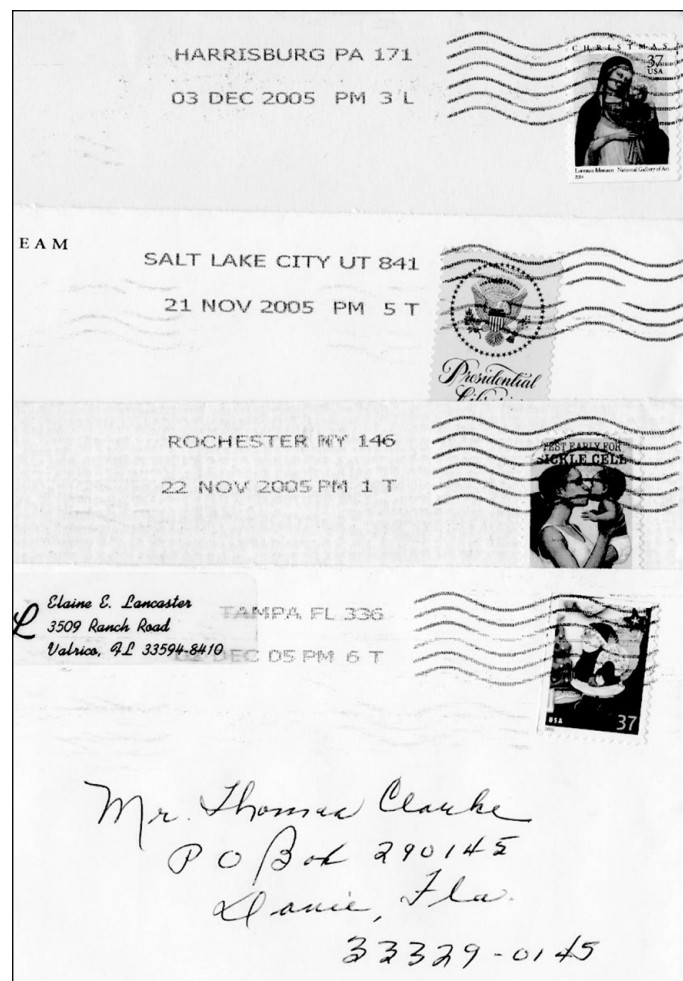 HARRISBURG PA 171
03 DEC 2005 PM 3 L
CHRISTMAS
37
USA
Lorenzo Monaco National Gallery of Art
2004
EAM
SALT LAKE CITY UT 841
21 NOV 2005 PM 5 T
Presidential
ROCHESTER NY 146
22 NOV 2005 PM 1 T
TEST EARLY FOR
SICKLE CELL
L
Elaine E. Lancaster
3509 Ranch Road
Valrico, FL 33594-8410
TAMPA FL 336
DEC 05 PM 6 T
USA
37
Mr. Thomas Clarke
P O Box 290145
Davie, Fla.
33329-0145